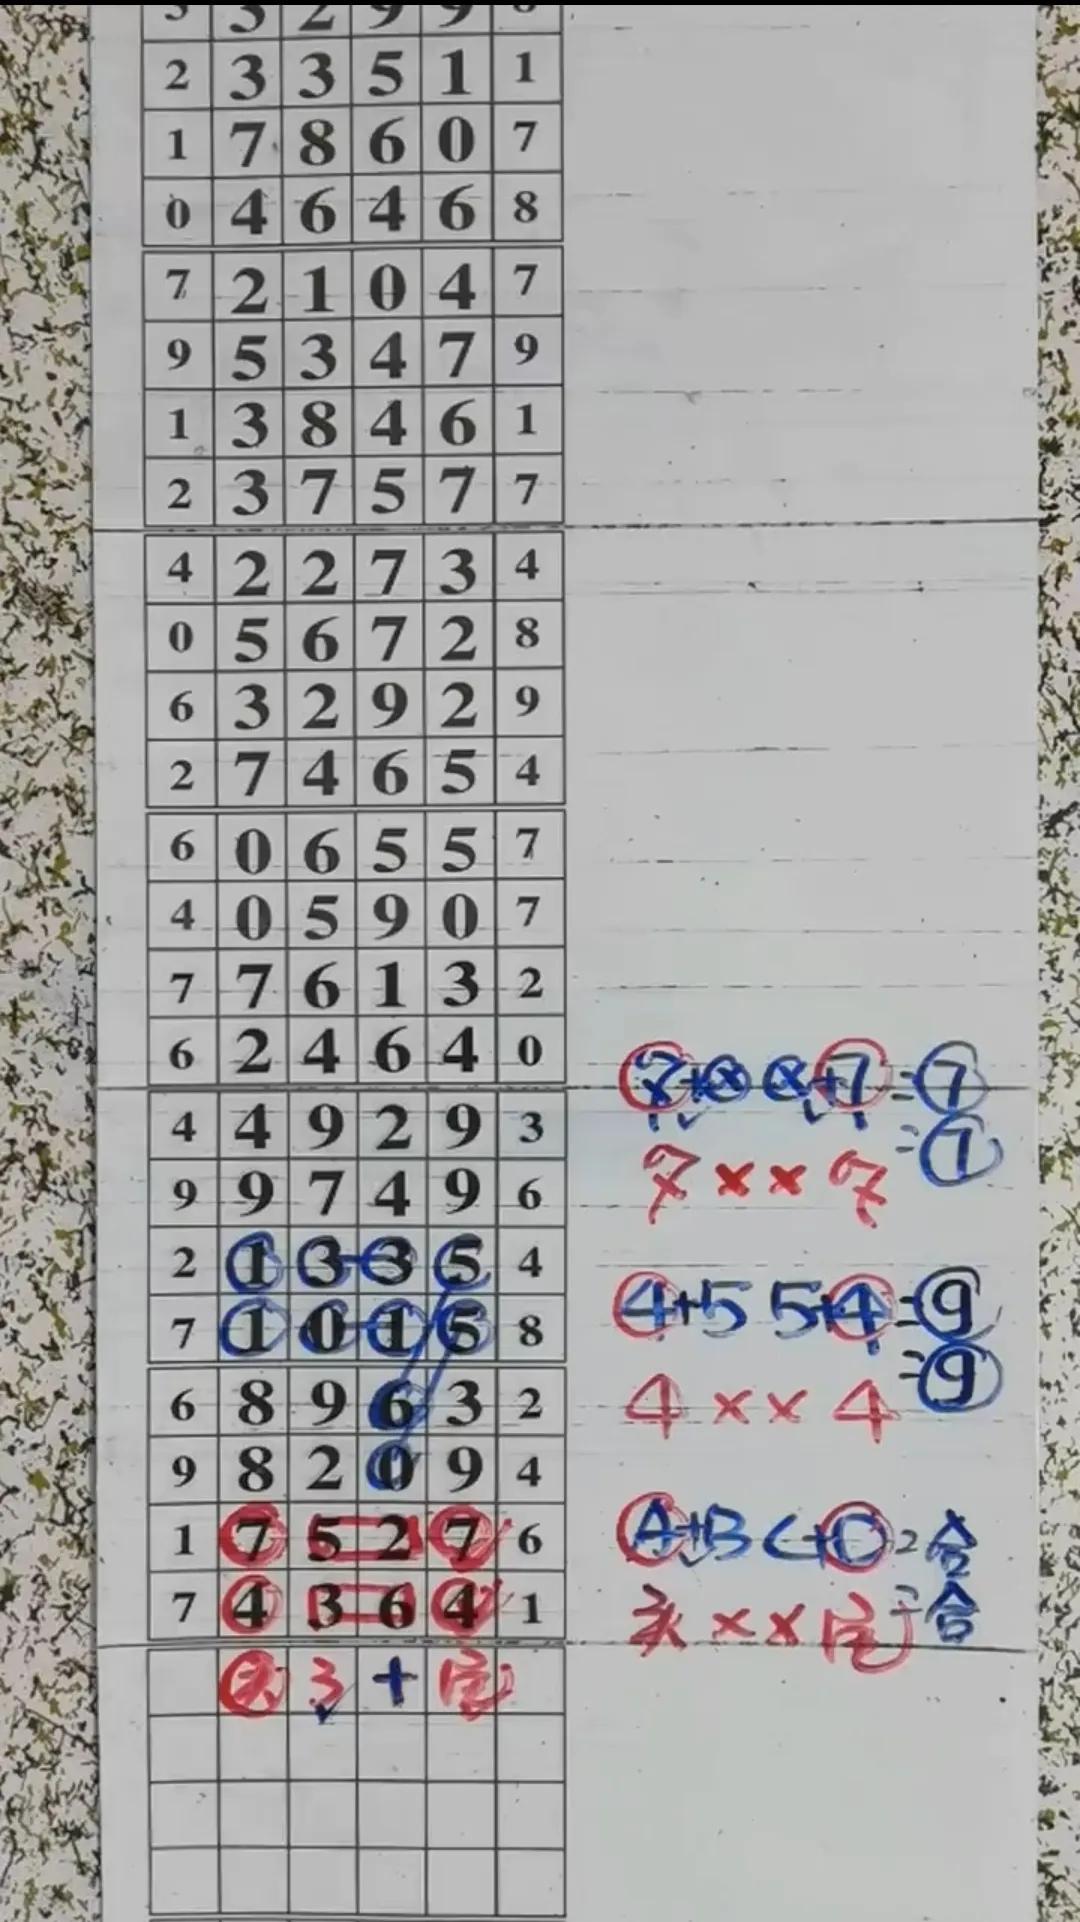 2 3 3 5 1 1
1 7 8 6 0 7
0 4 6 4 6 8
7 2 1 0 4 7
9 5 3 4 7 9
1 3 8 4 6 1
2 3 7 5 7 7
4 2 2 7 3 4
0 5 6 7 2 8
6 3 2 9 2 9
2 7 4 6 5 4
6 0 6 5 5 7
4 0 5 9 0 7
7 7 6 1 3 2
6 2 4 6 4 0
4 4 9 2 9 3
9 9 7 4 9 6
2 1 3 3 5 4
7 1 0 1 5 8
6 8 9 6 3 2
9 8 2 0 9 4
1 7 5 2 7 6
7 4 3 6 4 1
3 +
=7
=7
7 × × 7
4+5 5+4=9
=9
4 × × 4
A+B C+D=合
头 × × =合